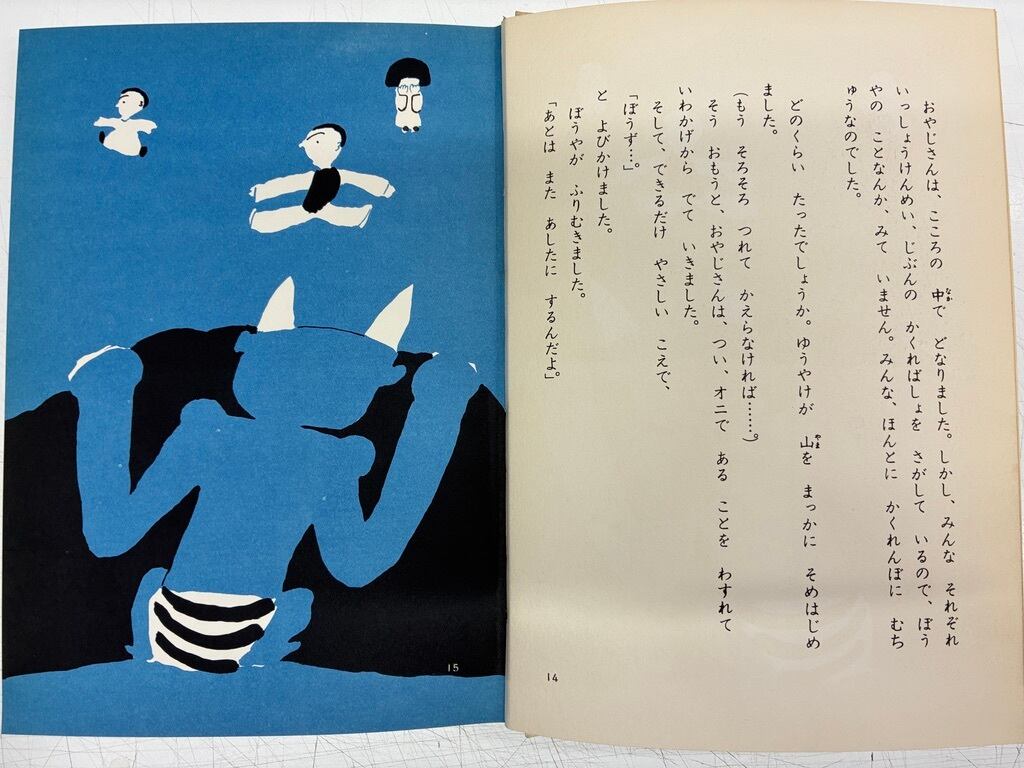 おやじさんは、こころの 中で どなりました。しかし、みんな それぞれ
いっしょうけんめい、じぶんの かくればしょを さがして いるので、ぼう
やの ことなんか、みて いません。みんな、ほんとに かくれんぼに むち
ゅうなのでした。
どのくらい たったでしょうか。ゆうやけが 山を まっかに そめはじめ
ました。
(もう そろそろ つれて かえらなければ……。)
そう おもうと、おやじさんは、つい、オニで ある ことを わすれて
いわかげから でて いきました。
そして、できるだけ やさしい こえで、
「ぼうず…。」
と よびかけました。
ぼうやが ふりむきました。
「あとは また あしたに するんだよ」
14
15